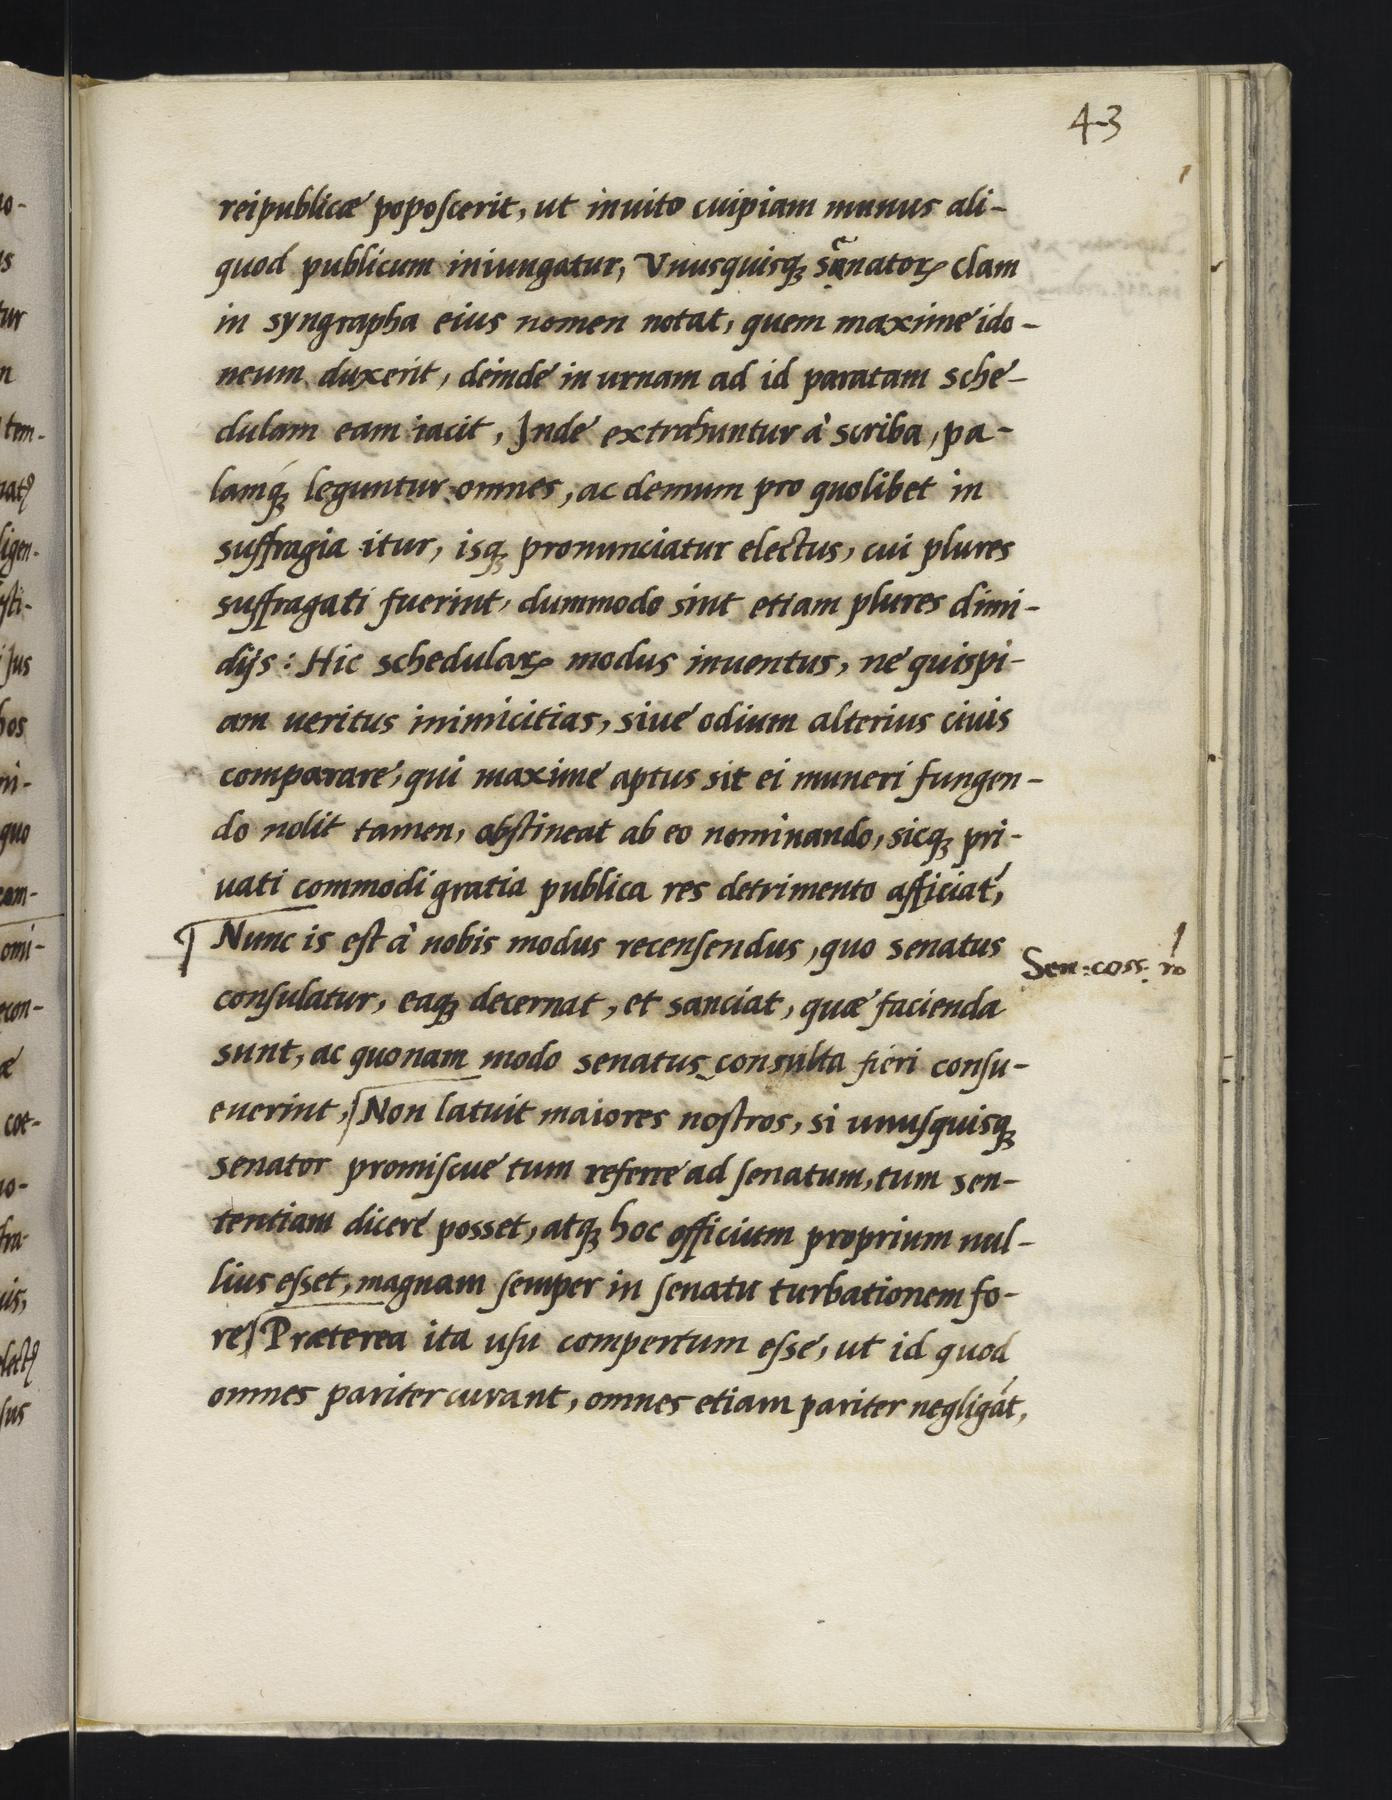 43
reipublicæ poposcerit, ut inuito cuipiam munus ali-
quod publicum iniungatur, Vnusquisqꝫ senatoꝝ clam
in syngrapha eius nomen notat, quem maxime ido-
neum duxerit, deinde in urnam ad id paratam sche-
dulam eam iacit, Inde extrahuntur à scriba, pa-
lamqꝫ leguntur omnes, ac demum pro quolibet in
suffragia itur, isqꝫ pronunciatur electus, cui plures
suffragati fuerint, dummodo sint etiam plures dimi-
dijs: Hic schedulaꝝ modus inuentus, ne quispi-
am ueritus inimicitias, siue odium alterius ciuis
comparare, qui maxime aptus sit ei muneri fungen-
do nolit tamen, abstineat ab eo nominando, sicqꝫ pri-
uati commodi gratia publica res detrimento afficiat́,
Nunc is est à nobis modus recensendus, quo senatus
consulatur, eaqꝫ decernat, et sanciat, quæ facienda
sunt, ac quonam modo senatus consulta fieri consu-
euerint, Non latuit maiores nostros, si unusquisqꝫ
senator promiscue tum referre ad senatum, tum sen-
tentiam dicere posset, atqꝫ hoc officium proprium nul-
lius esset, magnam semper in senatu turbationem fo-
re Præterea ita usu compertum esse, ut id quod
omnes pariter curant, omnes etiam pariter negligát,
Sen: coss: ro